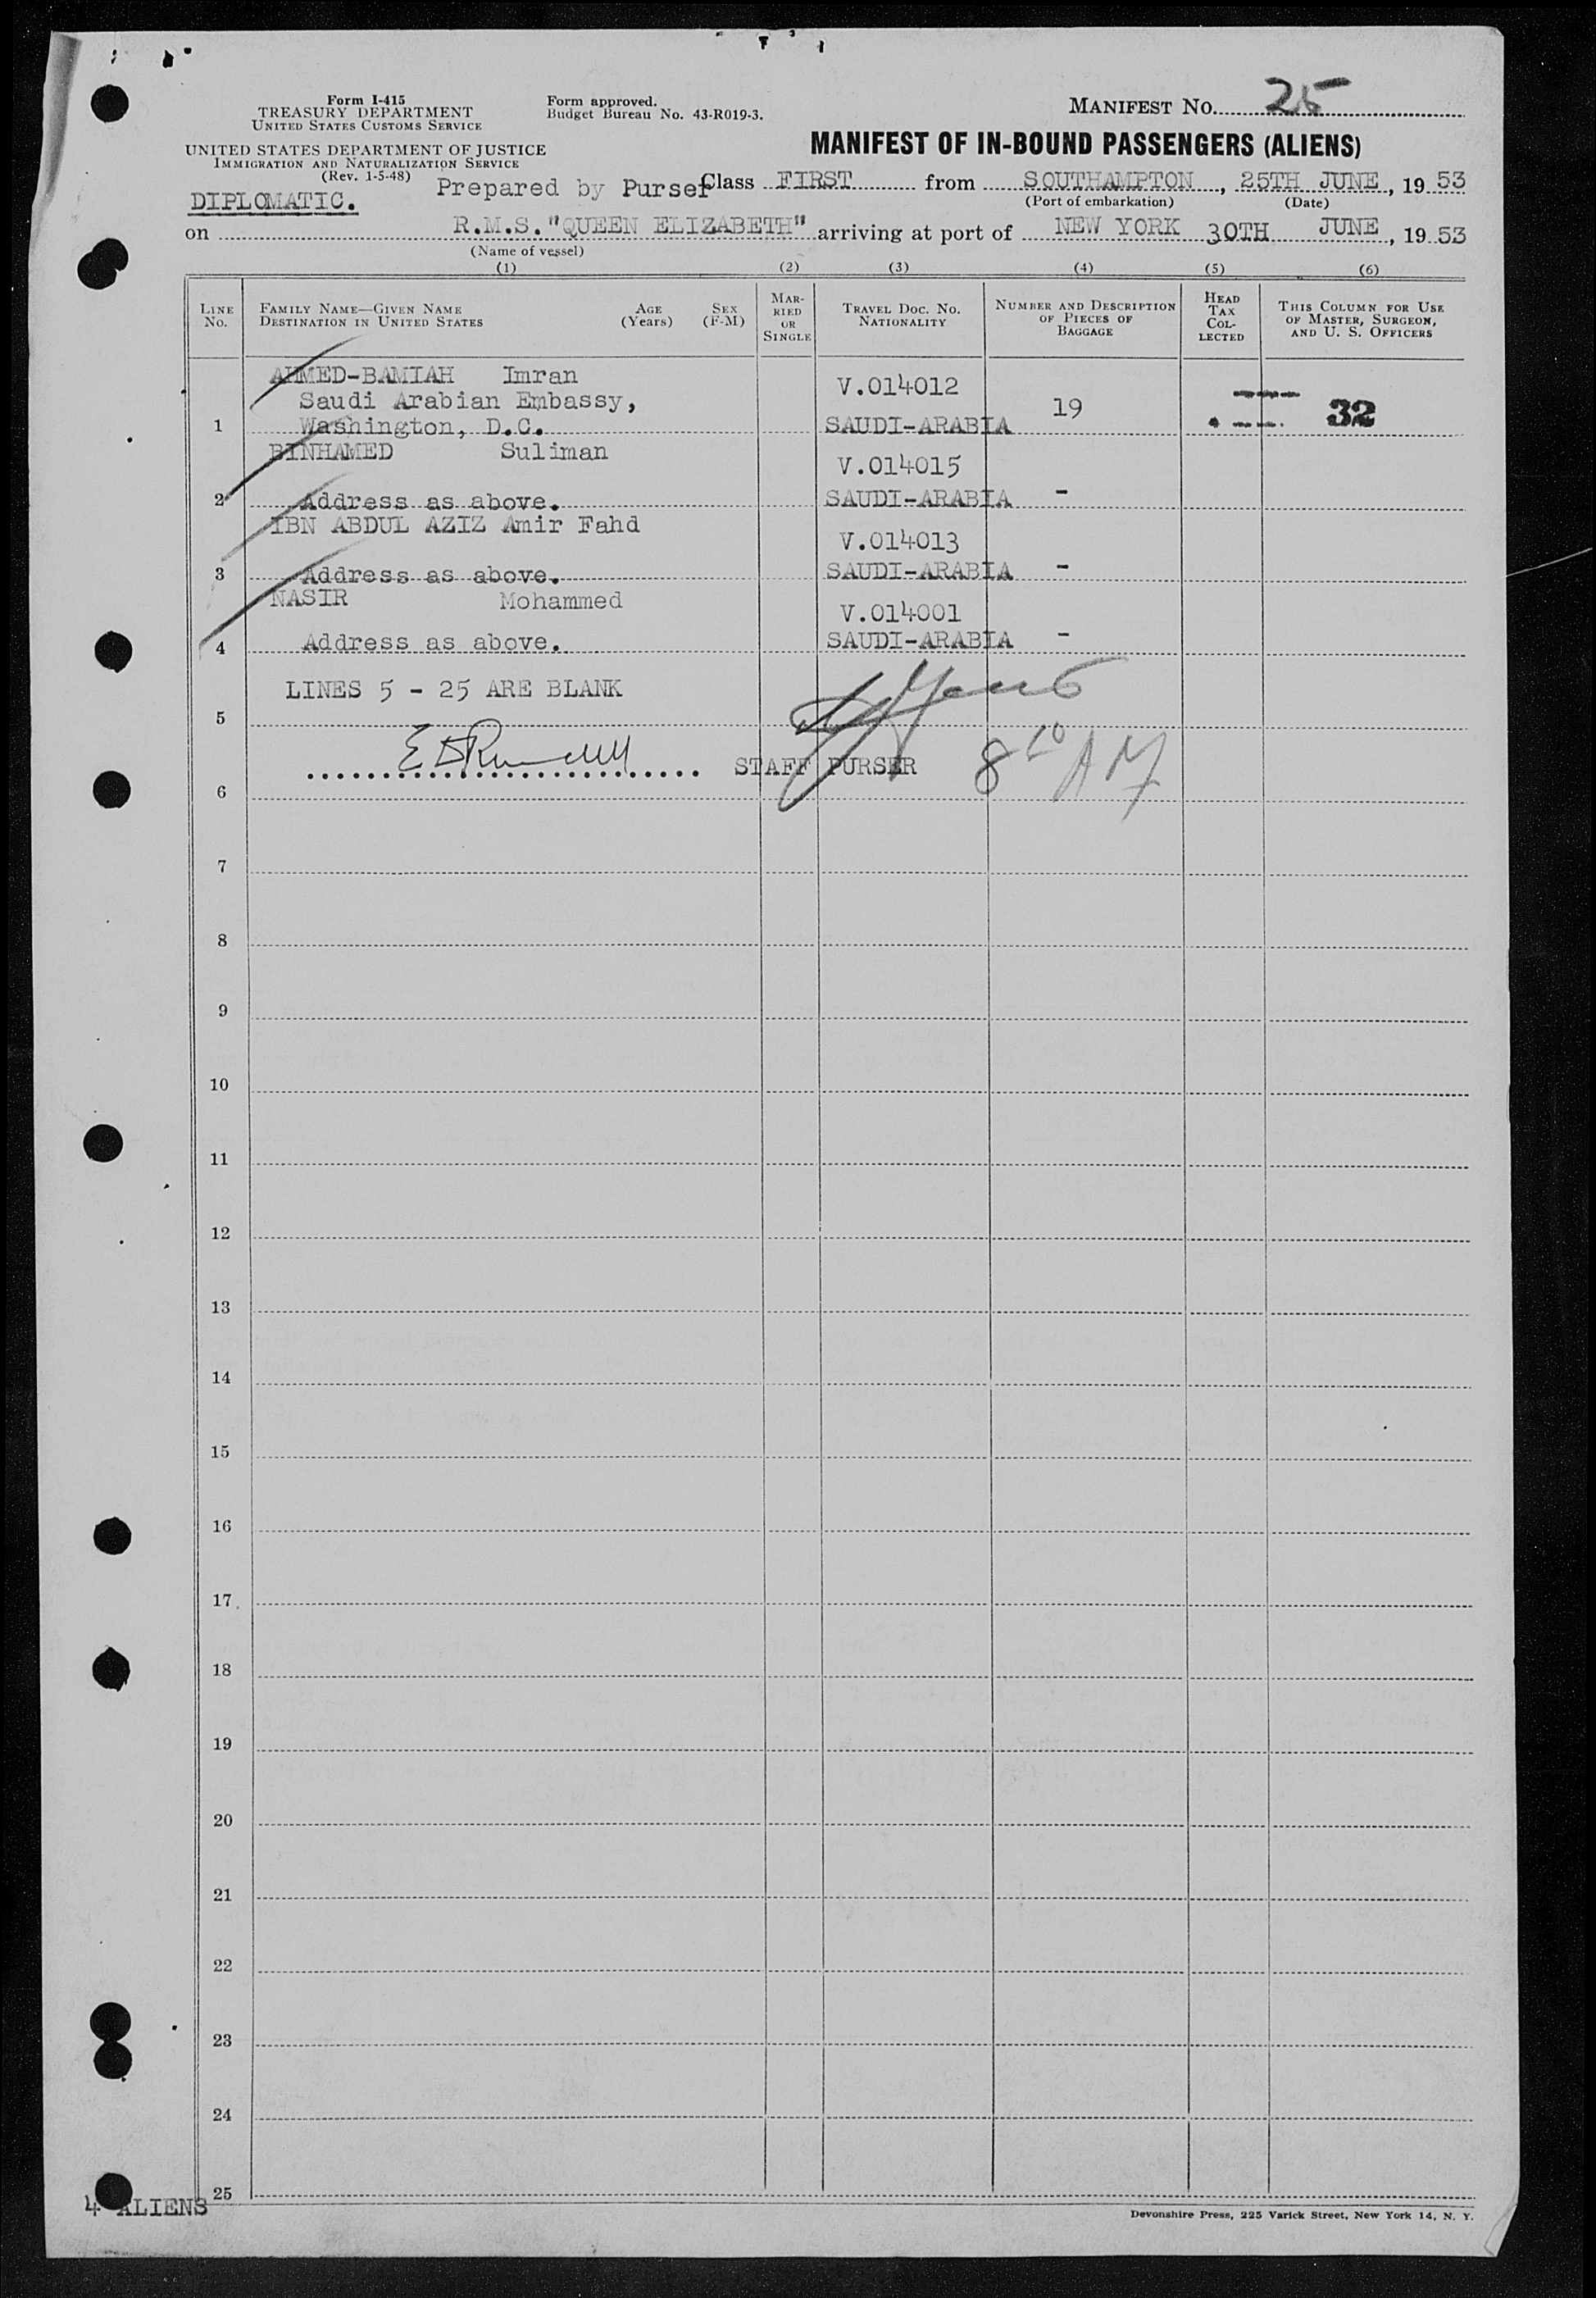 Form I-415
TREASURY DEPARTMENT
UNITED STATES CUSTOMS SERVICE
UNITED STATES DEPARTMENT OF JUSTICE
IMMIGRATION AND NATURALIZATION SERVICE
(Rev. 1-5-48)
Form approved.
Budget Bureau No. 43-R019-3.
MANIFEST No. 25
MANIFEST OF IN-BOUND PASSENGERS (ALIENS)
DIPLOMATIC. Prepared by Purser Class FIRST from SOUTHAMPTON, 25TH JUNE, 19 53
(Port of embarkation) (Date)
on R.M.S. "QUEEN ELIZABETH" arriving at port of NEW YORK 30TH JUNE, 19 53
(Name of vessel)
(1) (2) (3) (4) (5) (6)
LINE No.
FAMILY NAME—GIVEN NAME
DESTINATION IN UNITED STATES
AGE (Years)
SEX (F-M)
MAR-
RIED
OR
SINGLE
TRAVEL DOC. No.
NATIONALITY
NUMBER AND DESCRIPTION
OF PIECES OF
BAGGAGE
HEAD
TAX
COL-
LECTED
THIS COLUMN FOR USE
OF MASTER, SURGEON,
AND U. S. OFFICERS
AHMED-BAMIAH Imran V.014012
Saudi Arabian Embassy, 19 32
1 Washington, D.C. SAUDI-ARABIA
BINHAMED Suliman V.014015
2 Address as above. SAUDI-ARABIA -
IBN ABDUL AZIZ Amir Fahd V.014013
3 Address as above. SAUDI-ARABIA -
NASIR Mohammed V.014001
4 Address as above. SAUDI-ARABIA -
LINES 5 - 25 ARE BLANK
5
STAFF PURSER 8 10 AM
6
7
8
9
10
11
12
13
14
15
16
17
18
19
20
21
22
23
24
25
4 ALIENS
Devonshire Press, 225 Varick Street, New York 14, N. Y.